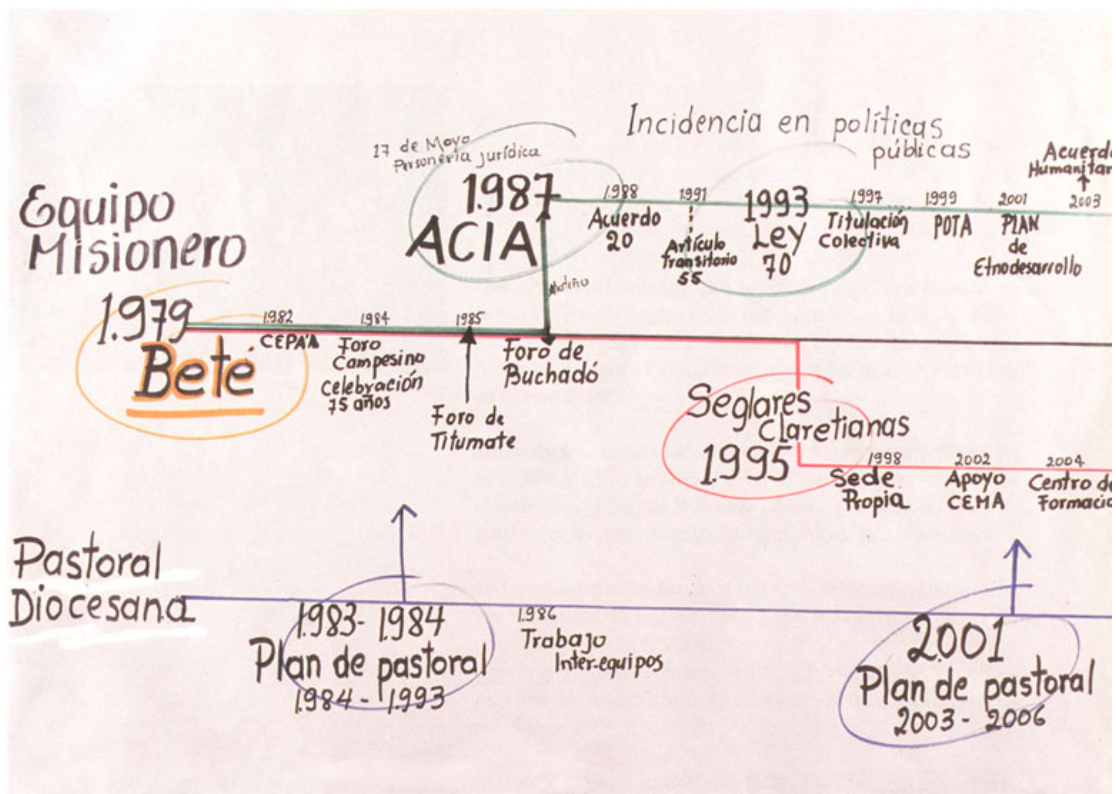 Incidencia en políticas
públicas
17 de Mayo
Personería jurídica
1.987
ACIA
1.988
Acuerdo
20
1.991
Artículo
Transitorio
55
1993
Ley
70
1.997
Titulación
Colectiva
1.999
POTA
2001
PLAN
de
Etnodesarrollo
Acuerdo
Humanitar
2003
Equipo
Misionero
1.979
Beté
1.982
CEPA'A
1.984
Foro
Campesino
Celebración
75 años
1.985
Foro de
Titumate
Foro de
Buchadó
Seglares
Claretianas
1.995
1.998
Sede
Propia
2.002
Apoyo
CEMA
2.004
Centro de
Formació
Pastoral
Diocesana
1.983-1.984
Plan de pastoral
1.984-1.993
1.986
Trabajo
Inter-equipos
2.001
Plan de pastoral
2003-2006